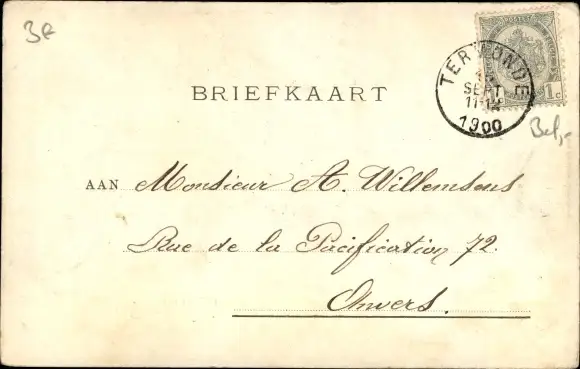 3e
TERMONDE
SEPT
11-12
1900
1c
Bel,-
BRIEFKAART
AAN Monsieur A. Willemsens
Rue de la Pacification 72.
Anvers.